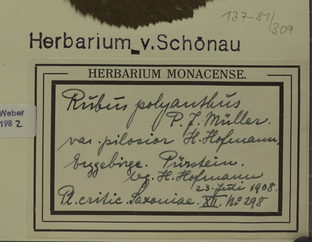 137-81/309
Herbarium v. Schönau
HERBARIUM MONACENSE.
Rubus polyanthus
P. J. Müller.
var. pilosior H. Hofmann.
Erzgebirge. Pürstein.
leg. H. Hofmann
23. Juli 1908.
Pl. critic. Saxoniae. XII. No 298
Weber
198 2